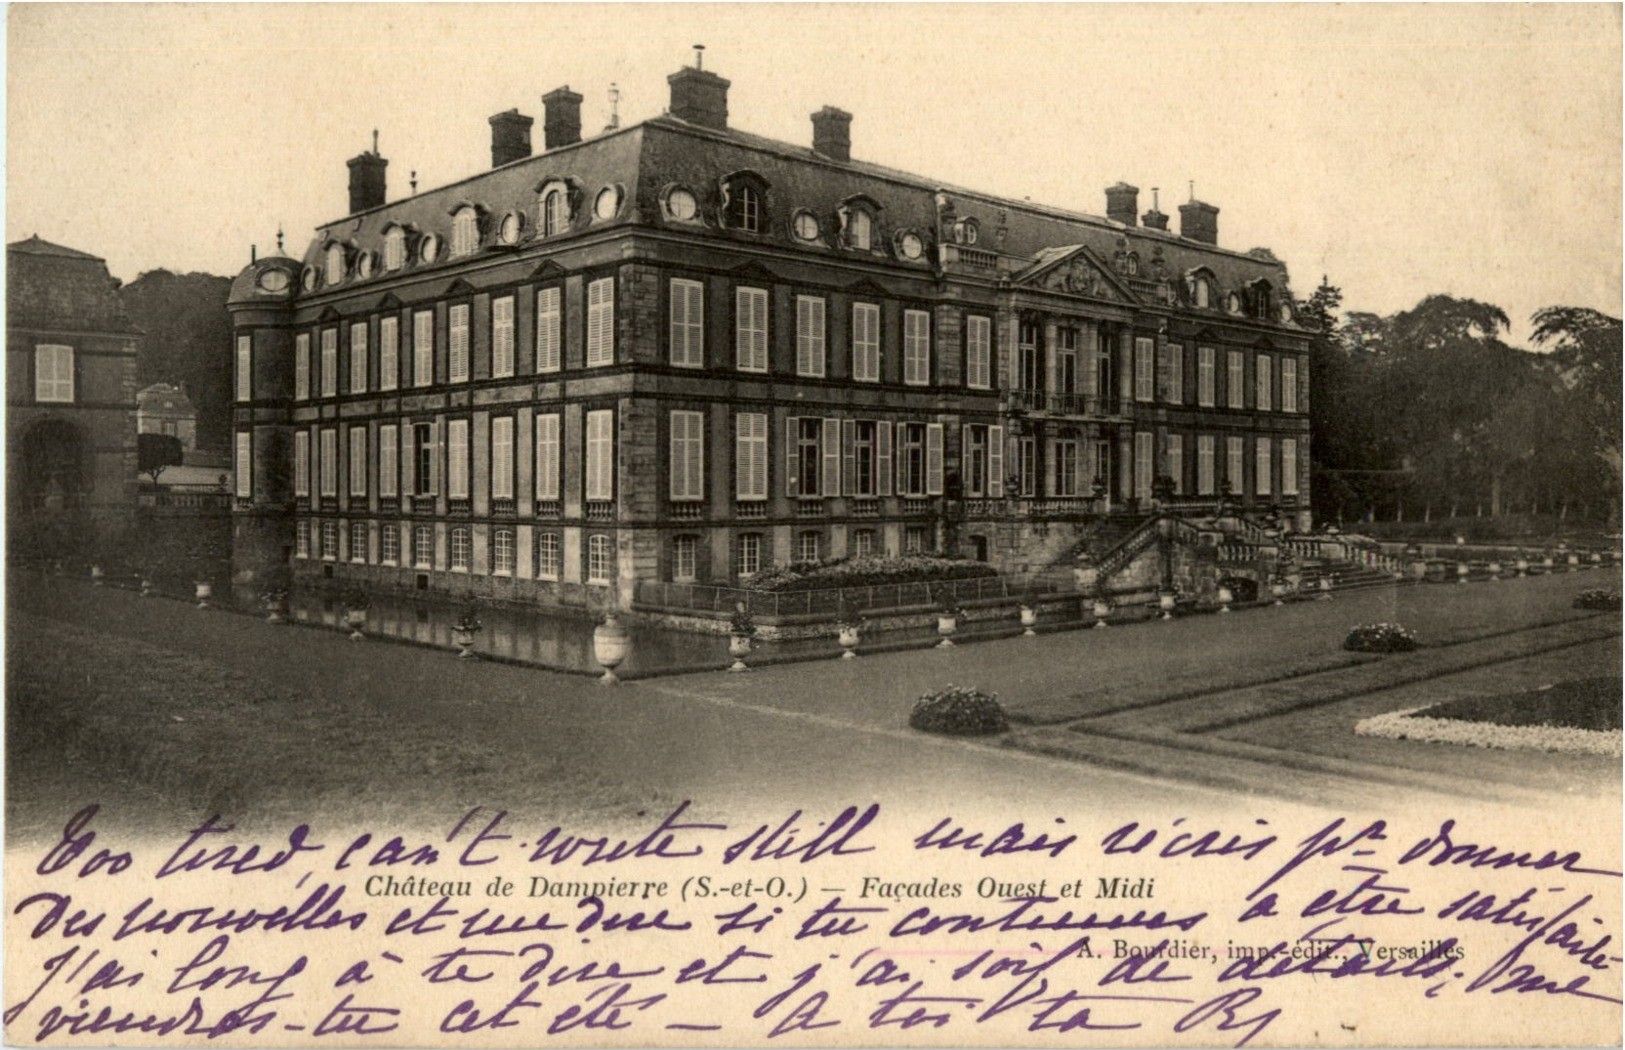 Too tired, can't write still mais récris pr donner
Château de Dampierre (S.-et-O.) — Façades Ouest et Midi
des nouvelles et me dire si tu continues a être satisfaite
A. Bourdier, imp.-édit., Versailles
J'ai long à te dire et j'ai soif de détails, me
viendras-tu cet été — A toi ta